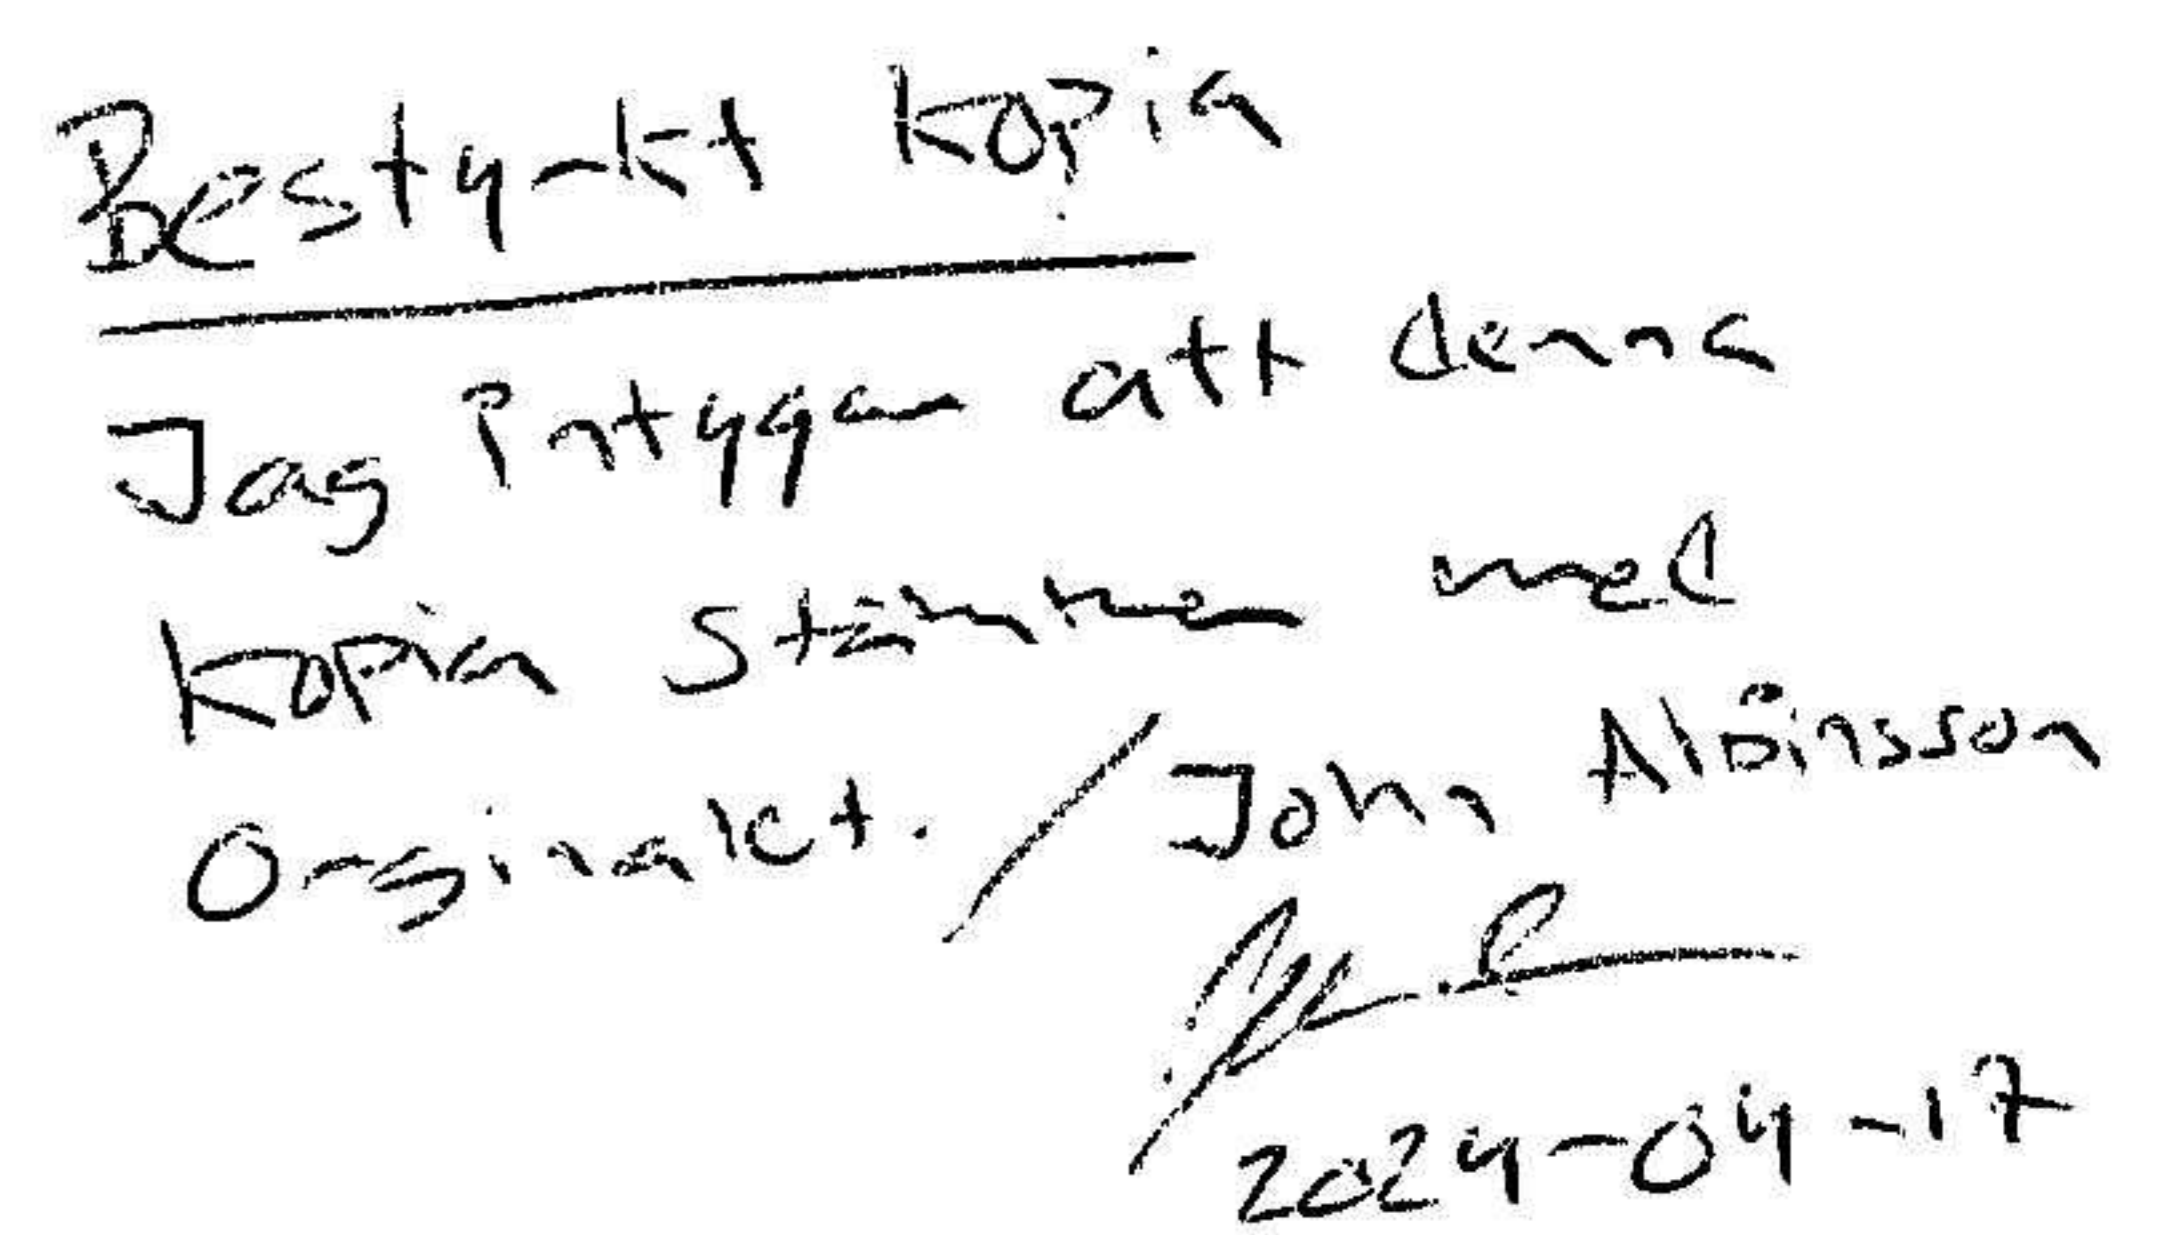 Bestyrkt kopia
Jag intygar att denna
kopia stämmer med
Orginalet. / John Albinsson
2024-04-17